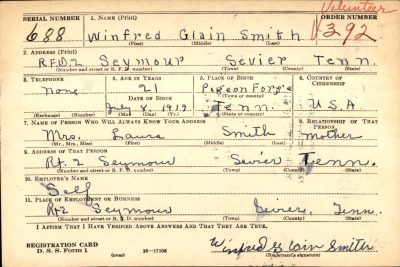 Volunteer
SERIAL NUMBER 1. NAME (Print) ORDER NUMBER
688 Winfred Glain Smith V392
(First) (Middle) (Last)
2. ADDRESS (Print)
R.F.D. 2 Seymour Sevier Tenn.
(Number and street or R. F. D. number) (Town) (County) (State)
3. TELEPHONE 4. AGE IN YEARS 5. PLACE OF BIRTH 6. COUNTRY OF CITIZENSHIP
None 21 Pigeon Forge
DATE OF BIRTH (Town or county)
July 8, 1919 Tenn. U.S.A
(Exchange) (Number) (Mo.) (Day) (Yr.) (State or country)
7. NAME OF PERSON WHO WILL ALWAYS KNOW YOUR ADDRESS 8. RELATIONSHIP OF THAT PERSON
Mrs. Laura Smith Mother
(Mr., Mrs., Miss) (First) (Middle) (Last)
9. ADDRESS OF THAT PERSON
Rt. 2 Seymour Sevier Tenn.
(Number and street or R. F. D. number) (Town) (County) (State)
10. EMPLOYER'S NAME
Self
11. PLACE OF EMPLOYMENT OR BUSINESS
Rt 2 Seymour Sevier, Tenn.
(Number and street or R. F. D. number) (Town) (County) (State)
I AFFIRM THAT I HAVE VERIFIED ABOVE ANSWERS AND THAT THEY ARE TRUE.
REGISTRATION CARD
D. S. S. Form 1 16—17105 Winfred Glain Smith
(Registrant's signature)